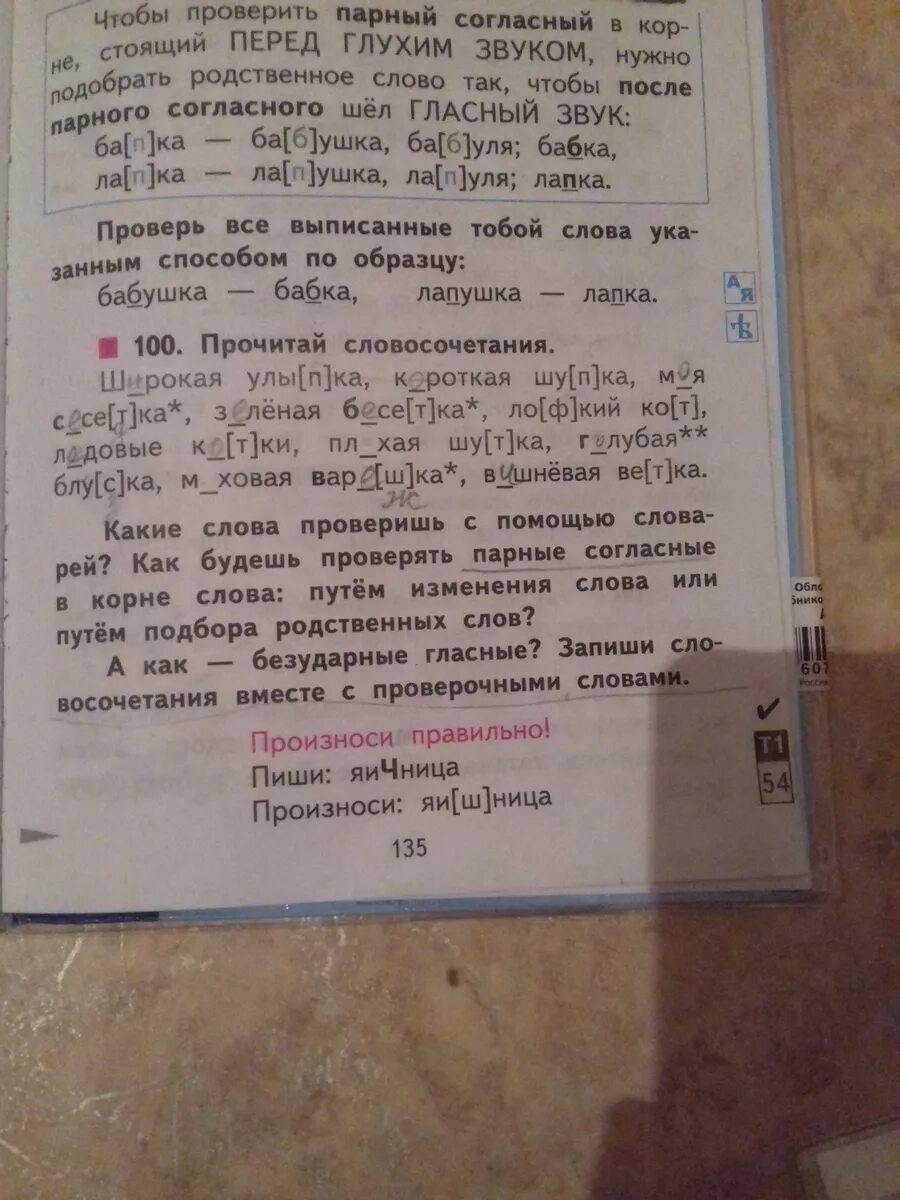 Чтобы проверить парный согласный в кор-
не, стоящий ПЕРЕД ГЛУХИМ ЗВУКОМ, нужно
подобрать родственное слово так, чтобы после
парного согласного шёл ГЛАСНЫЙ ЗВУК:
ба[п]ка — ба[б]ушка, ба[б]уля; бабка,
ла[п]ка — ла[п]ушка, ла[п]уля; лапка.
Проверь все выписанные тобой слова ука-
занным способом по образцу:
бабушка — бабка, лапушка — лапка.
А
Я
100. Прочитай словосочетания.
Широкая улы[п]ка, короткая шу[п]ка, моя
сосе[т]ка*, зелёная бесе[т]ка*, ло[ф]кий ко[т],
ледовые ко[т]ки, пл_хая шу[т]ка, голубая**
блу[с]ка, м_ховая варе[ш]ка*, вишнёвая ве[т]ка.
ж
Какие слова проверишь с помощью слова-
рей? Как будешь проверять парные согласные
в корне слова: путём изменения слова или
путём подбора родственных слов?
А как — безударные гласные? Запиши сло-
восочетания вместе с проверочными словами.
Произноси правильно!
Пиши: яиЧница
Произноси: яи[ш]ница
Т1
54
135
607